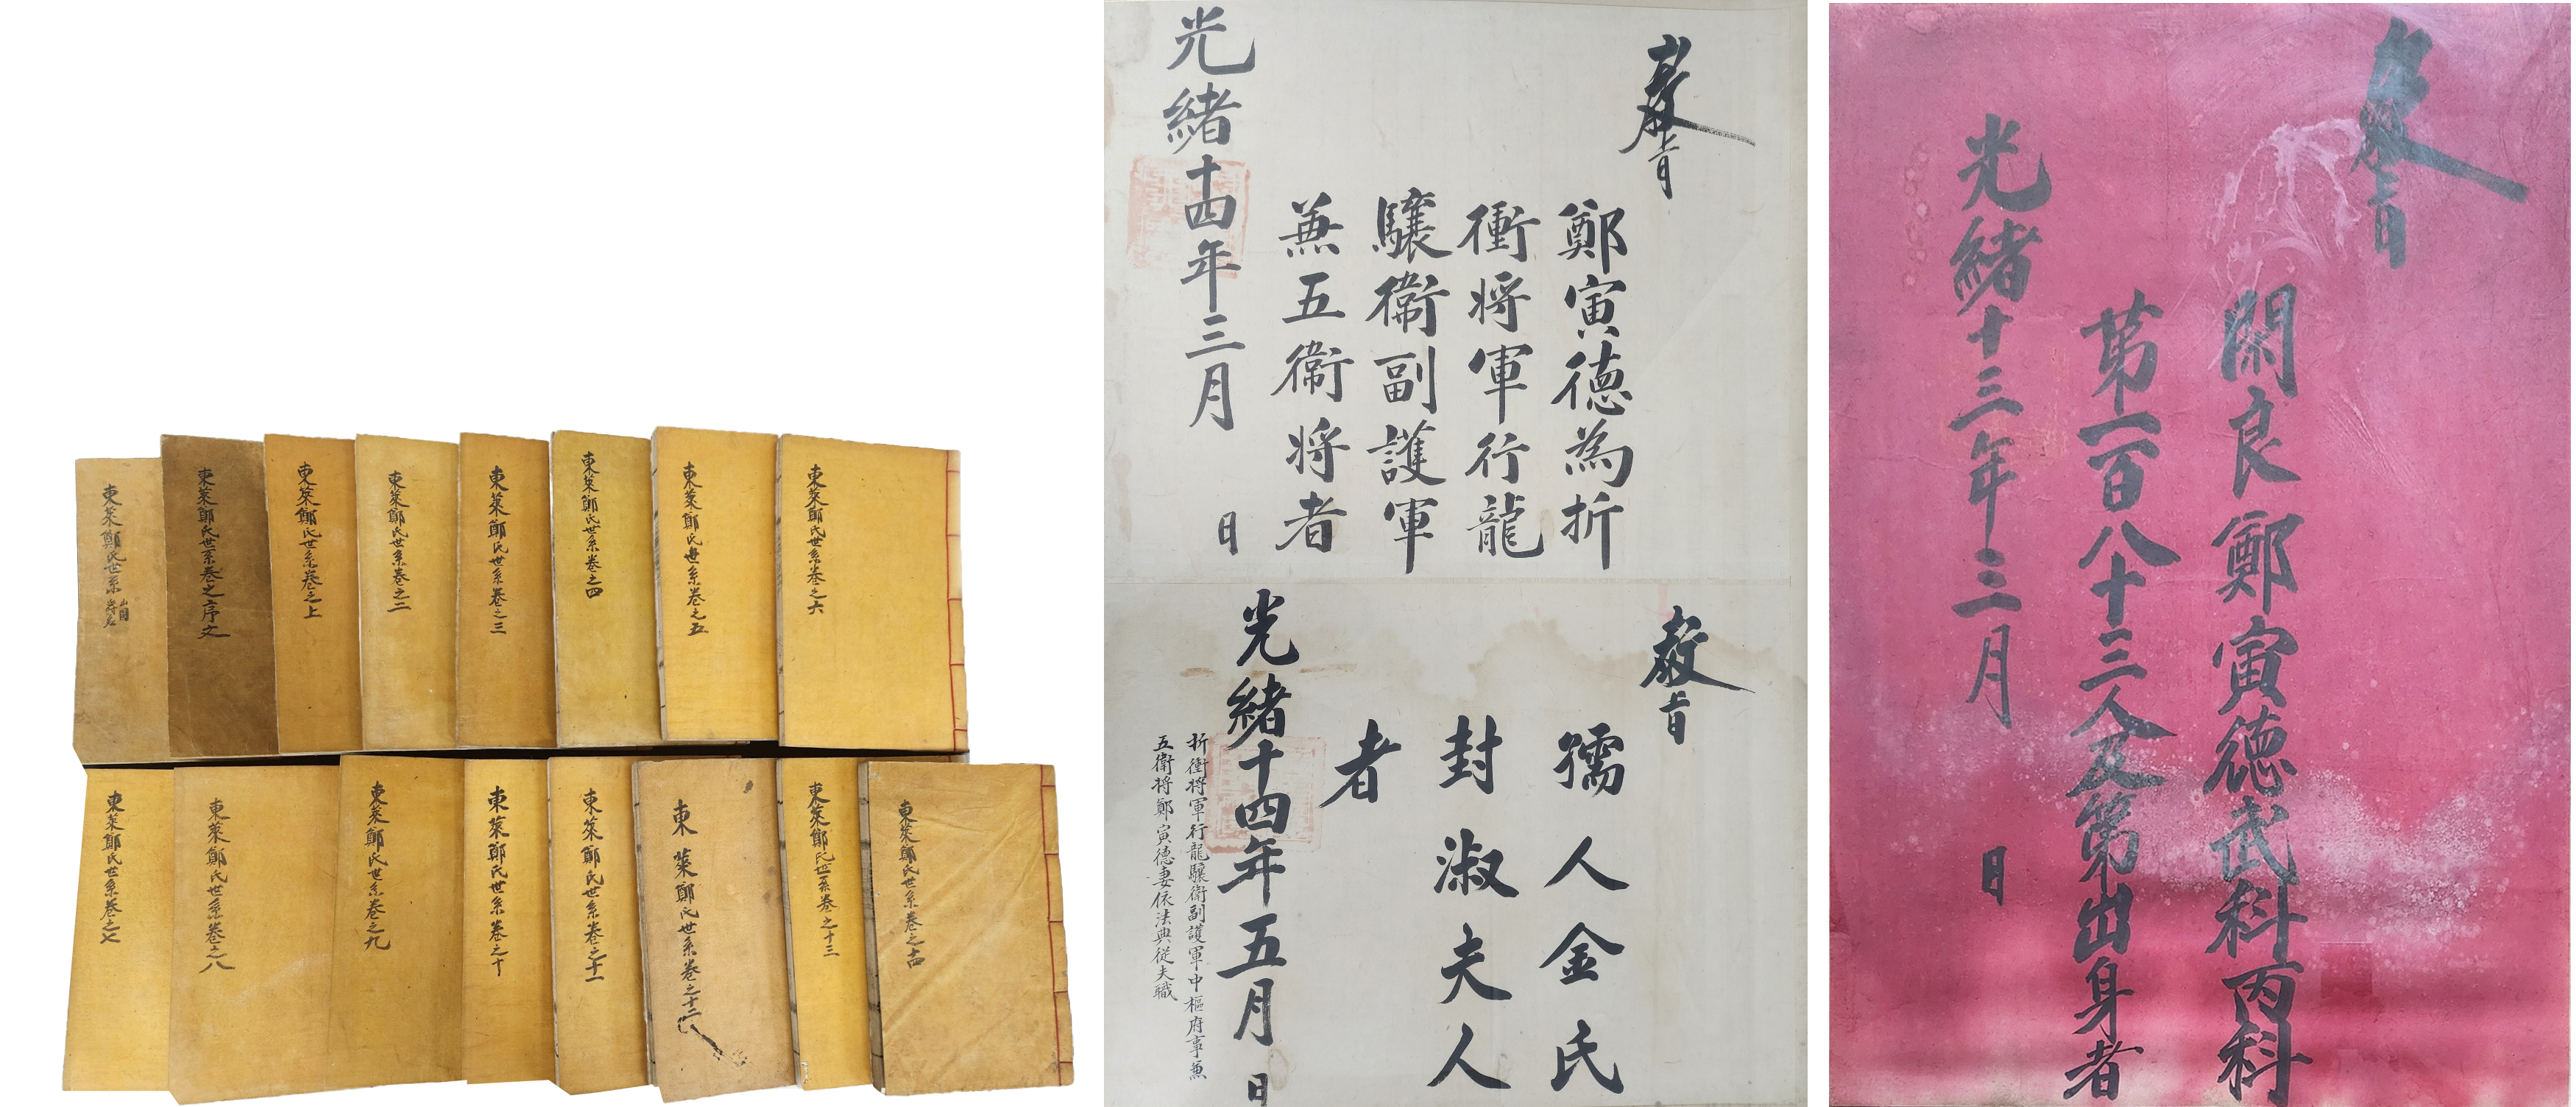 東萊鄭氏世系
東萊鄭氏世系卷之序文
東萊鄭氏世系卷之上
東萊鄭氏世系卷之二
東萊鄭氏世系卷之三
東萊鄭氏世系卷之四
東萊鄭氏世系卷之五
東萊鄭氏世系卷之六
東萊鄭氏世系卷之七
東萊鄭氏世系卷之八
東萊鄭氏世系卷之九
東萊鄭氏世系卷之十
東萊鄭氏世系卷之十一
東萊鄭氏世系卷之十二
東萊鄭氏世系卷之十三
東萊鄭氏世系卷之十四
敎旨
鄭寅德為折
衝将軍行龍
驤衛副護軍
兼五衛将者
光緒十四年三月 日
敎旨
孺人金氏
封淑夫人
者
光緒十四年五月 日
折衝将軍行龍驤衛副護軍中樞府事兼
五衛将鄭寅德妻依法典從夫職
敎旨
閑良鄭寅德武科丙科
第一百八十三人及第出身者
光緒十三年三月 日